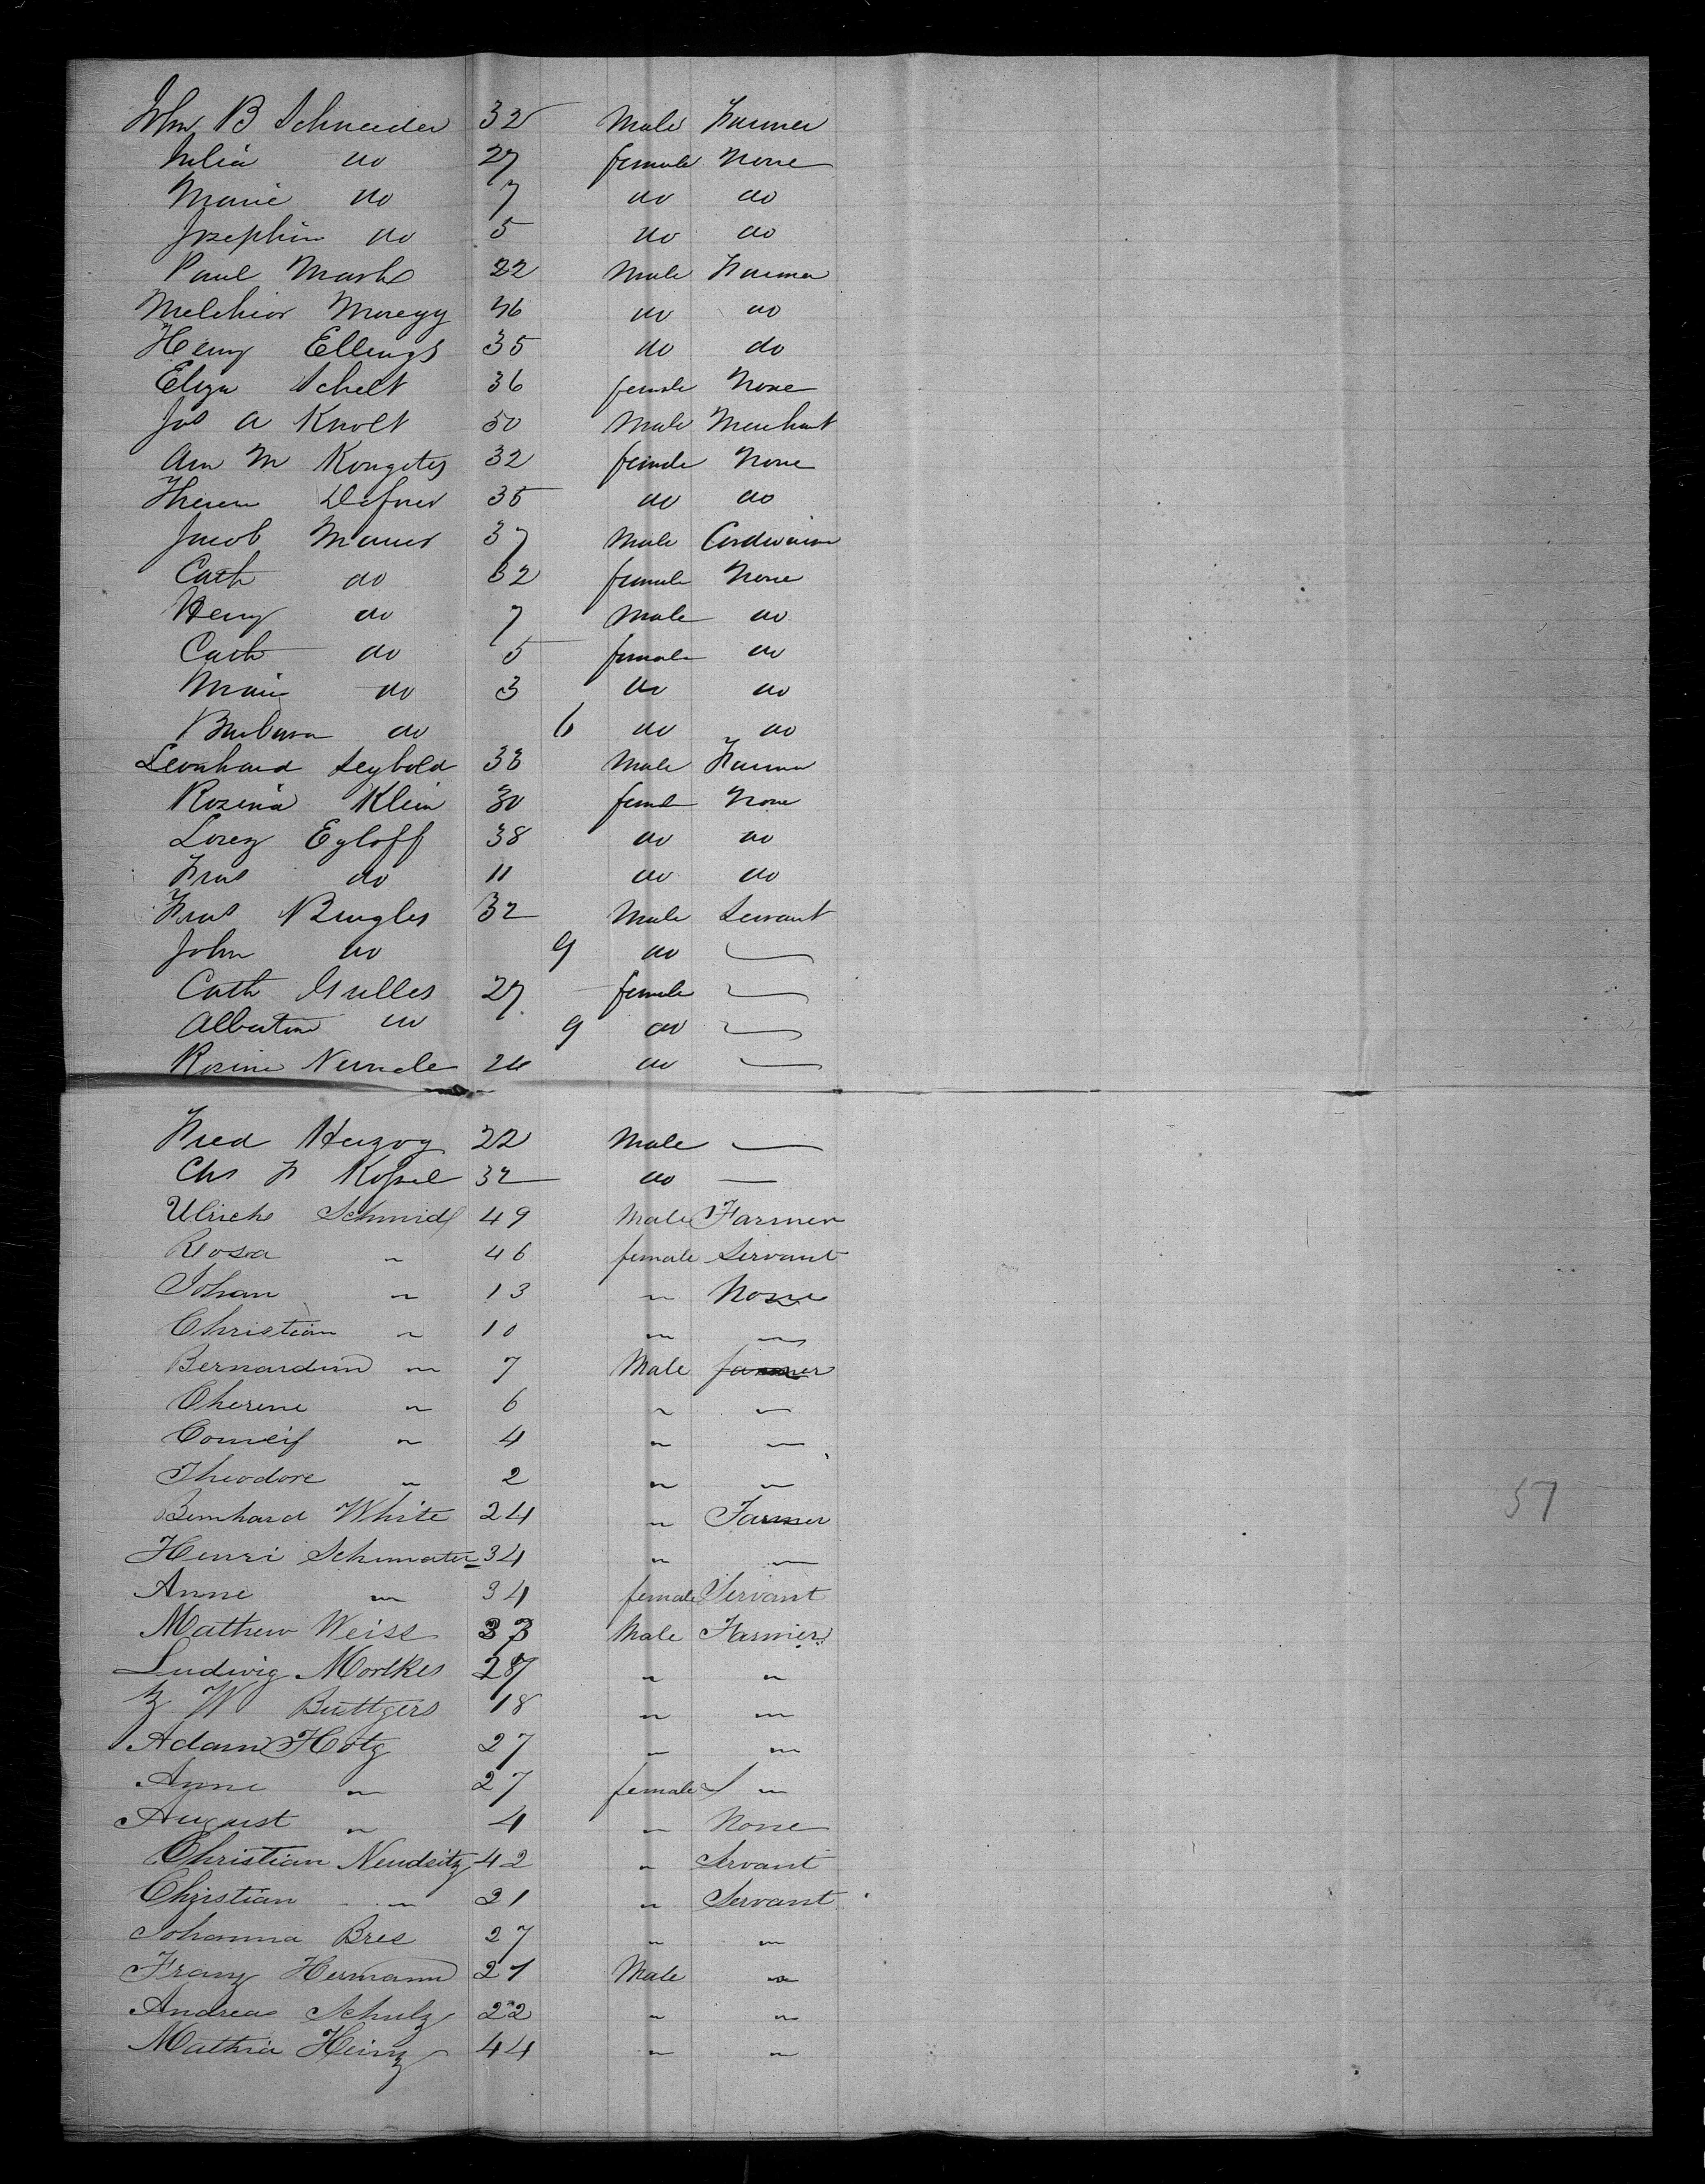 John B Schneider 32 Male Farmer
Julia do 27 female None
Marie do 7 do do
Josephin do 5 do do
Paul Marks 22 Male Farmer
Melchior Moregg 46 do do
Henry Ellengs 35 do do
Eliza Schelt 36 female None
Jos A Knolt 50 Male Merchant
Ann M 32 female None
35 do do
Jacob Maurer 37 Male Cordwainer
Cath do 32 female None
Henry do 7 Male do
Cath do 5 female do
Marie do 3 do do
Barbara do 6 do do
Leonhard Seybold 33 Male Farmer
Rosina Klein 30 female None
Lorez Egloff 38 do do
Fras do 11 do do
Fras Brugles 32 Male Servant
John do 9 do —
Cath Gulles 27 female —
Albertine do 9 do —
Rosine 24 do —
Fred Herzog 22 Male —
Chs F 32 do —
Ulrich Schmid 49 Male Farmer
Rosa " 46 female Servant
Johan " 13 " None
Christian " 10 " "
Bernardim " 7 Male farmer
Cherene " 6 " "
" 4 " "
Theodore " 2 " "
Bernhard White 24 " Farmer
Henri Schumater 34 " "
Anne " 34 female Servant
Mathew Weiss 33 Male Farmier
Ludwig Mortkes 27 " "
W Buttgers 18 " "
Adam Hotz 27 " "
Anne " 27 female S "
August " 4 " None
Christian Neudeitz 42 " Servant
Christian " 21 " Servant
Johanna Bres 27 " "
Franz Hermann 21 Male "
Andreas Schulz 22 " "
Mathia Heinz 44 " "
57